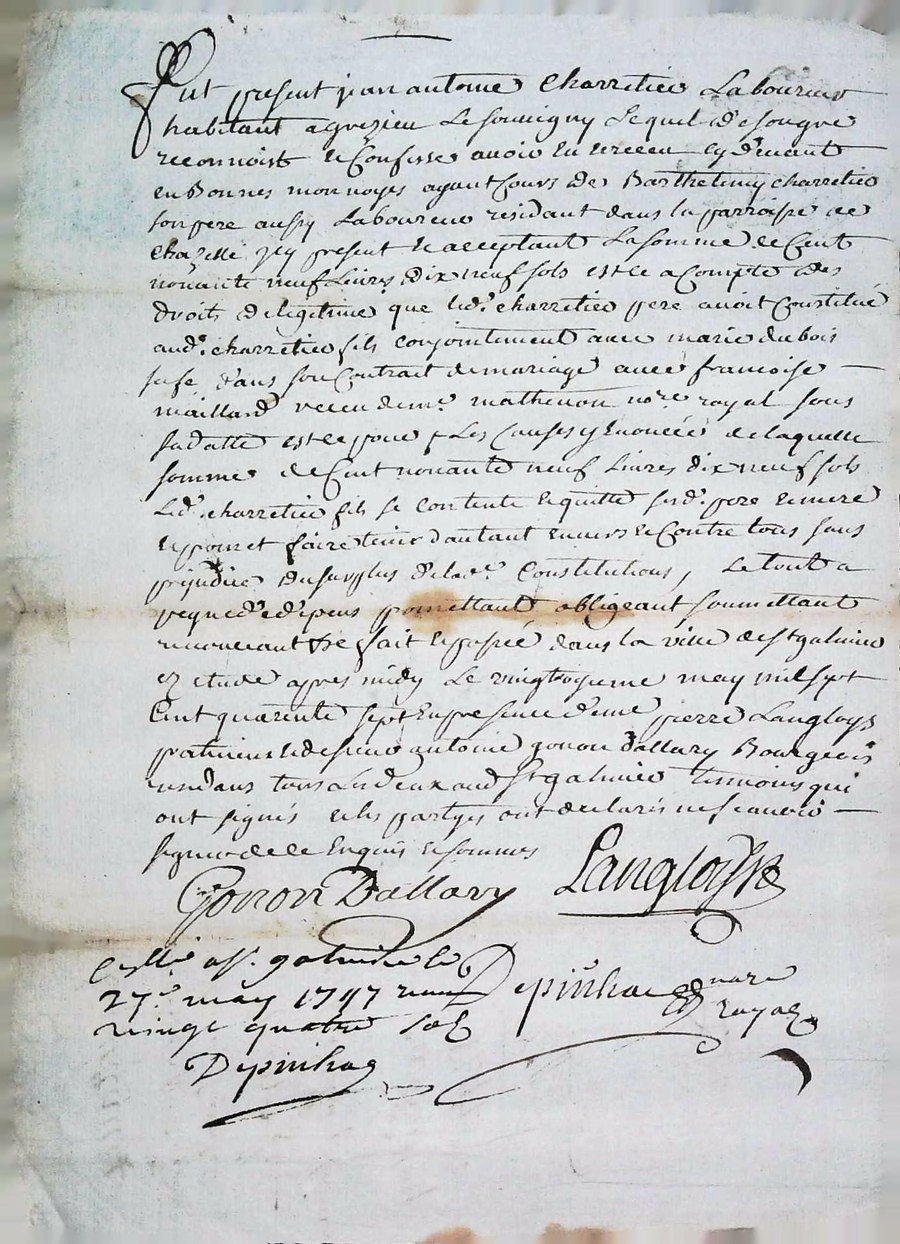 Fut present jean antoine charretier Laboureur
habitant a grezieu Le souvigny Lequel de son gre
reconnoist et Confesse avoir eu et receu cy devant
en Bonnes monnoyes ayant Cours de Barthelmy charretier
son pere aussy Laboureur residant dans la parroisse de
Chazelle icy present et acceptant La somme de Cent
nonante neuf Livres dix neuf sols est ce a Compte des
droits de legitime que led. charretier pere avoit Constitué
aud. charretier fils conjointement avec marie dubois
sa fe dans son Contrat de mariage avec francoise
maillard receu de me. mathenon nore. royal sous
sa datte est ce pour Les Causes y Enoncée de laquelle
somme de Cent nonante neuf Livres dix neuf sols
Led. charretier fils se contente et quitte sesd. pere et mere
et promet faire tenir d'autant envers et Contre tous sans
prejudice du surplus de lad. Constitutions, Le tout a
peyne de depens promettant obligeant soumettant
renonceant fait et passé dans la ville de St galmier
ez etude apres midy Le vingtroisieme may mil sept
Cent quarente sept En presence de me pierre Langloys
praticiens et de sieur antoine gonon d'allary Bourgeois
residans tous Les deux aud St galmier temoins qui
ont signés et les partyes ont declarés ne scavoir
signer de ce Enquis et sommes
Gonon Dallary Langloys
Cellé a St. galmier le
27e may 1747 receu
vingt quatre sols
Depinhac
Depinhac nore
royal